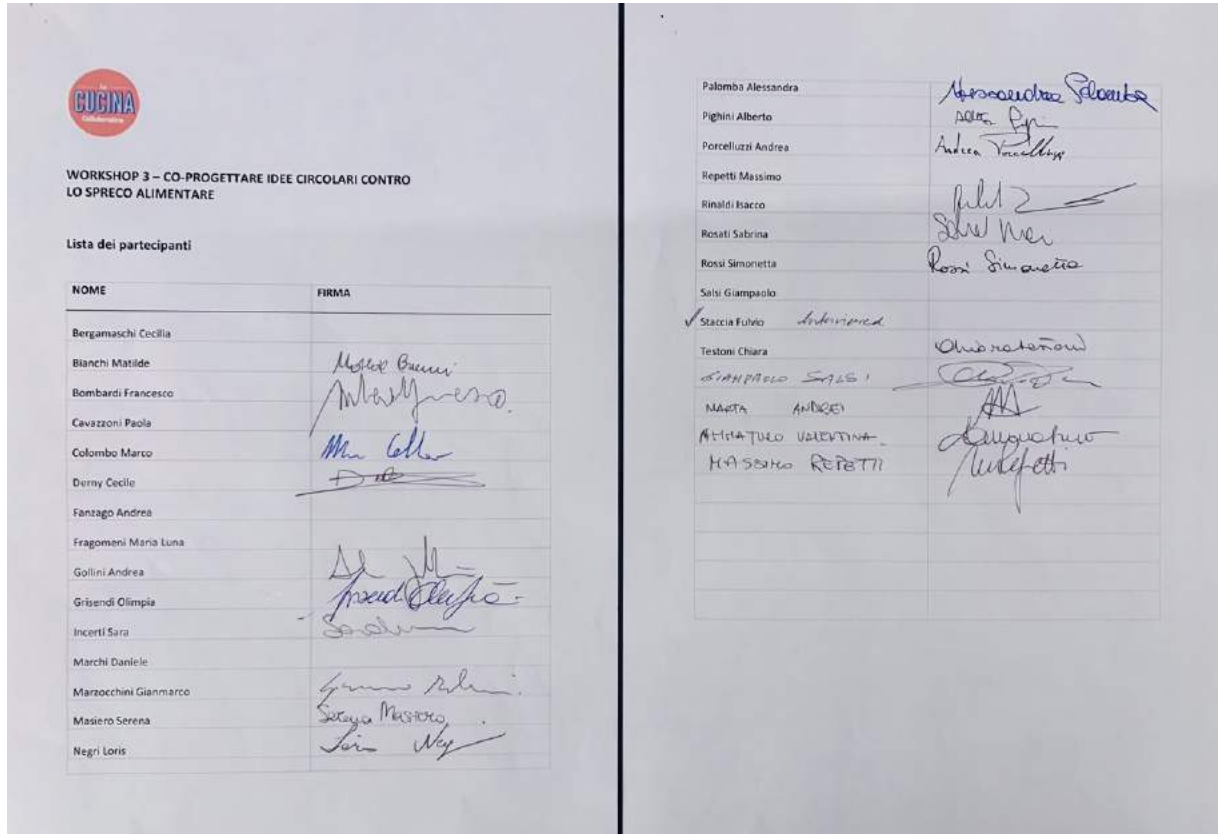 La
CUCINA
Collaborativa
WORKSHOP 3 – CO-PROGETTARE IDEE CIRCOLARI CONTRO
LO SPRECO ALIMENTARE
Lista dei partecipanti
NOME FIRMA
Bergamaschi Cecilia
Bianchi Matilde
Bombardi Francesco
Cavazzoni Paola
Colombo Marco
Derny Cecile
Fanzago Andrea
Fragomeni Maria Luna
Gollini Andrea
Grisendi Olimpia
Incerti Sara
Marchi Daniele
Marzocchini Gianmarco
Masiero Serena Serena Masiero
Negri Loris
Palomba Alessandra Alessandra Palomba
Pighini Alberto
Porcelluzzi Andrea Andrea Porcelluzzi
Repetti Massimo
Rinaldi Isacco
Rosati Sabrina
Rossi Simonetta Rossi Simonetta
Salsi Giampaolo
Staccia Fulvio
Testoni Chiara Chiara Testoni
GIAMPAOLO SALSI
MARTA ANDREI
AMMATURO VALENTINA
MASSIMO REPETTI